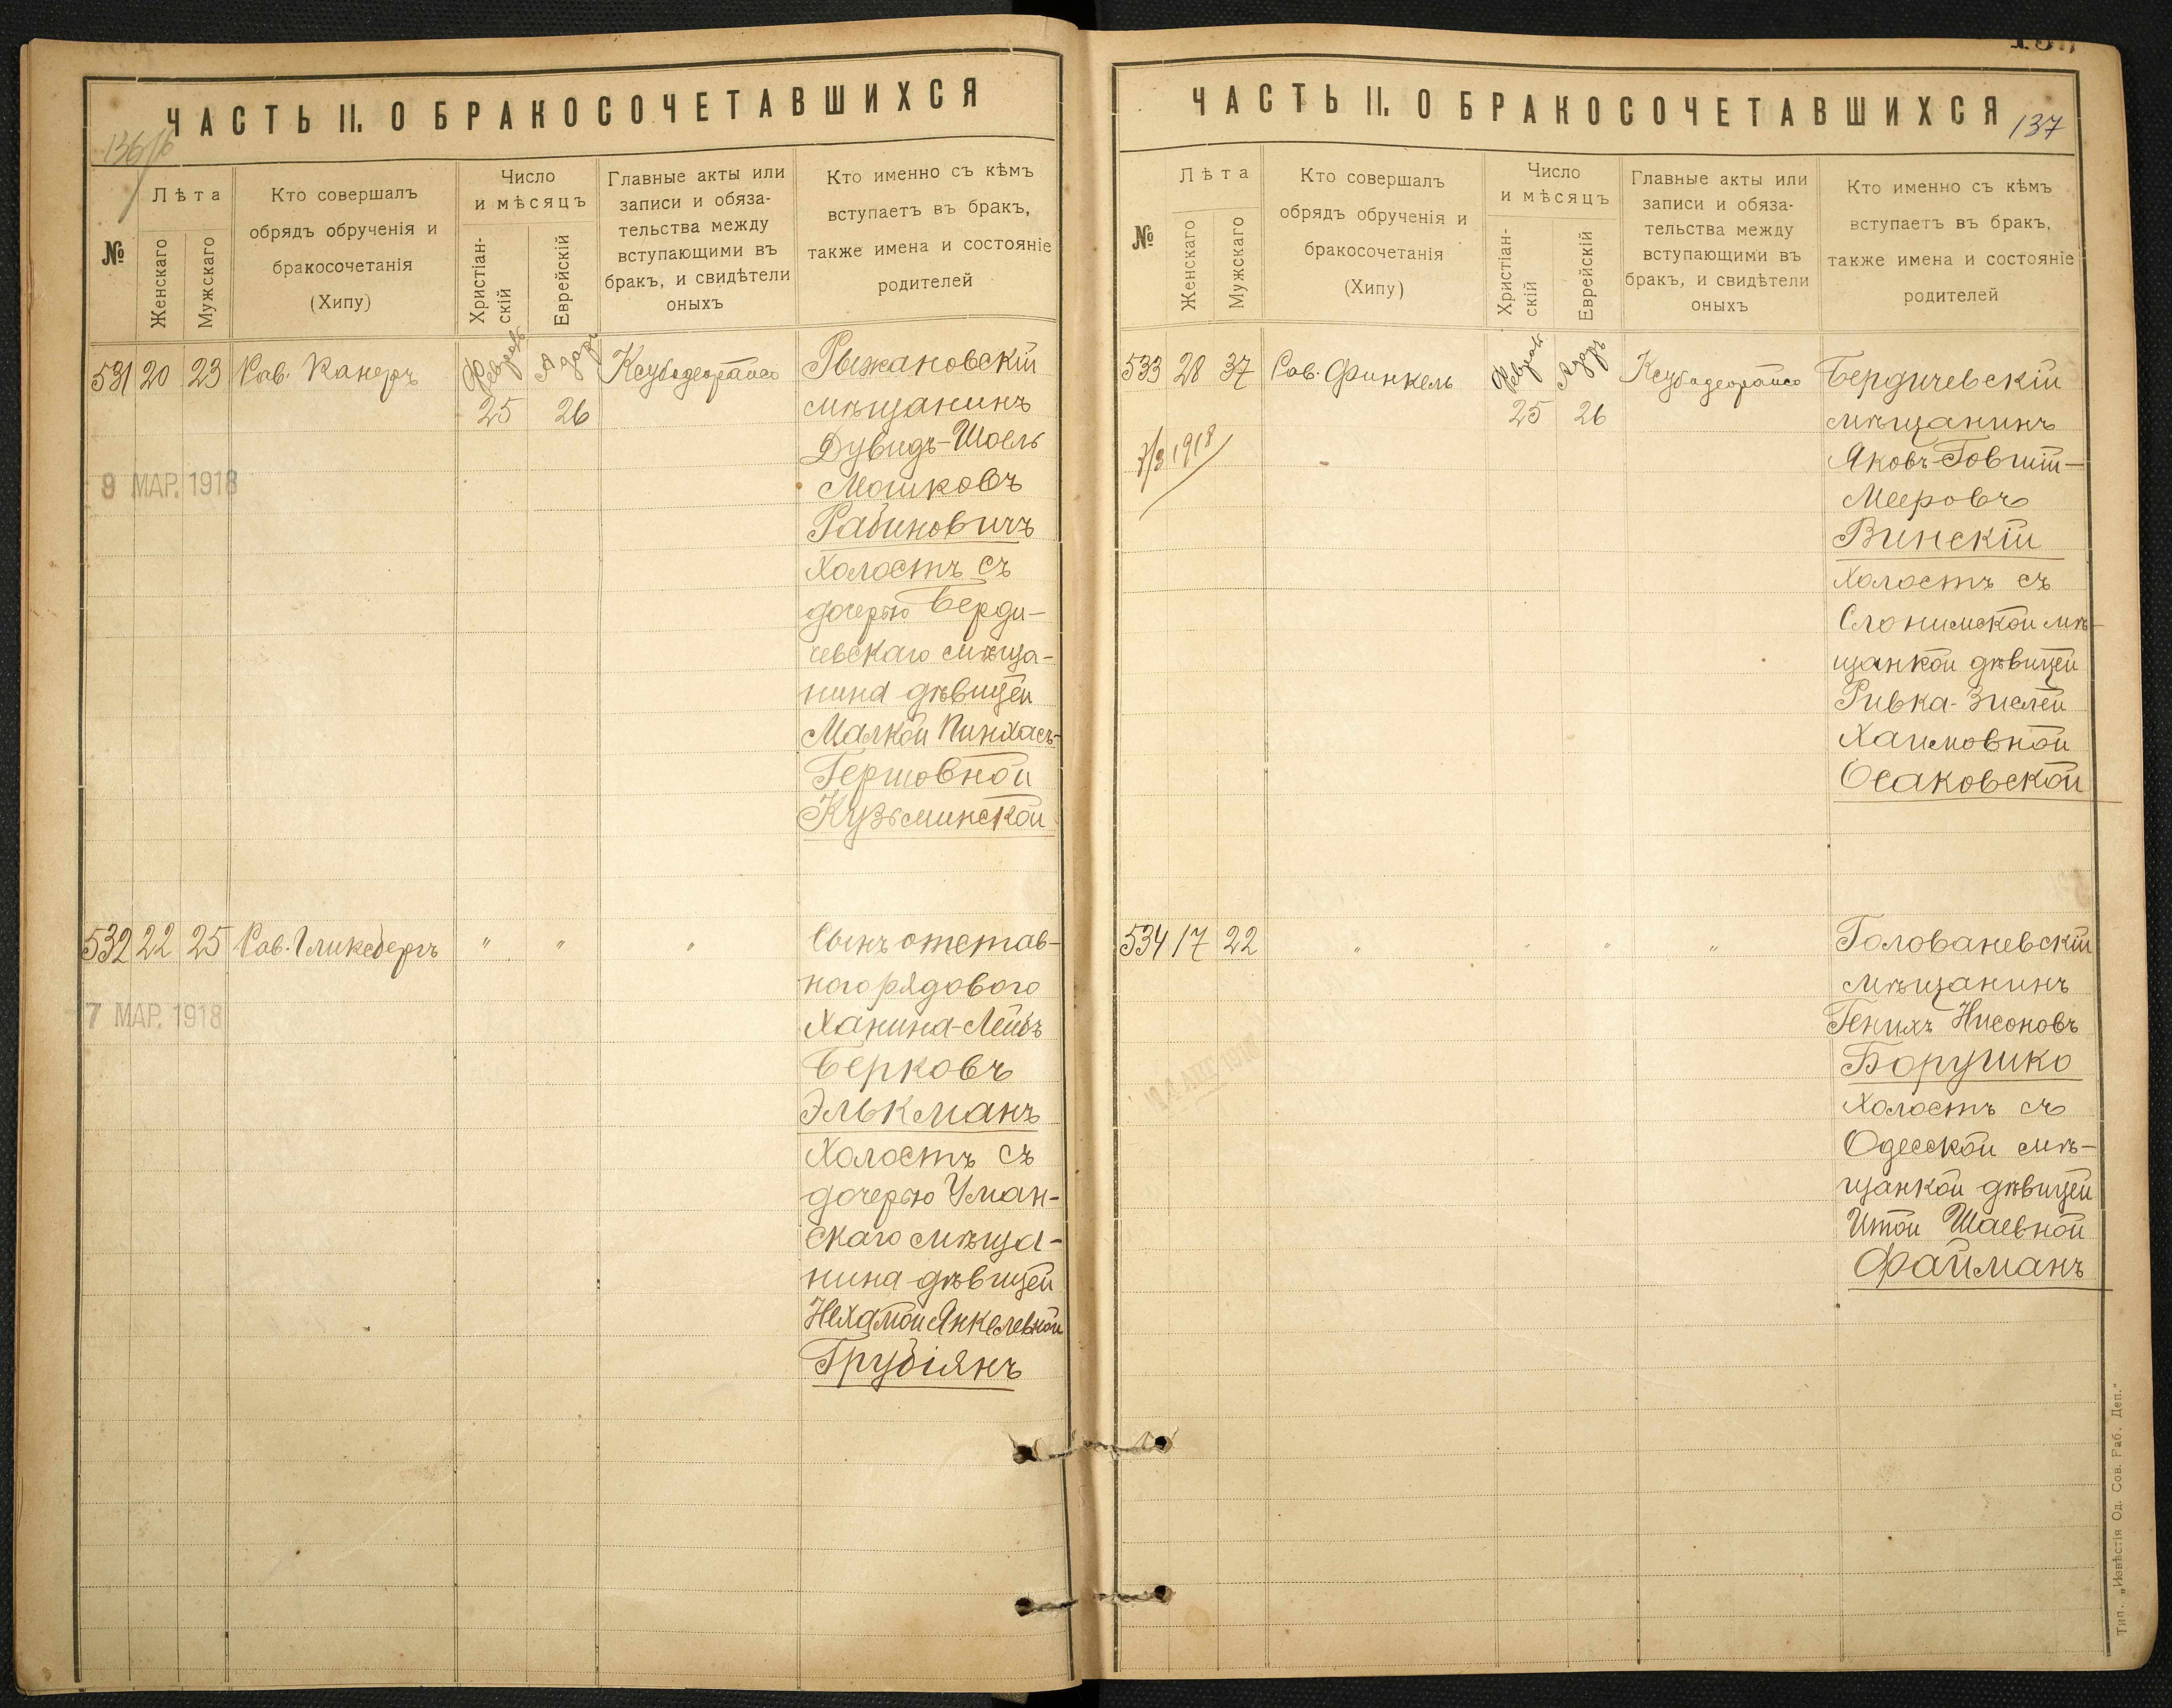 ЧАСТЬ II. О БРАКОСОЧЕТАВШИХСЯ
№
Лѣта
Женскаго
Мужскаго
Кто совершалъ
обрядъ обрученія и
бракосочетанія
(Хипу)
Число
и мѣсяцъ
Христіан-
скій
Еврейскій
Главные акты или
записи и обяза-
тельства между
вступающими въ
бракъ, и свидѣтели
оныхъ
Кто именно съ кѣмъ
вступаетъ въ бракъ,
также имена и состояніе
родителей
531 20 23 Рав. Канеръ
Февраль
25
Адаръ
26
Ксубадеорайсо
9 МАР. 1918
Рыжановскій
мѣщанинъ
Дувидъ-Шоель
Мошковъ
Рабиновичъ
Холостъ съ
дочерью Берди-
чевскаго мѣща-
нина дѣвицей
Малкой Пинхасъ-
Гершовной
Кузьминской
532 22 25 Рав. Гликсбергъ " " "
7 МАР. 1918
Сынъ отстав-
ного рядового
Ханина-Лейбъ
Берковъ
Элькманъ
Холостъ съ
дочерью Уман-
скаго мѣща-
нина дѣвицей
Нехамой Янкелевной
Грубіянъ
ЧАСТЬ II. О БРАКОСОЧЕТАВШИХСЯ
137
№
Лѣта
Женскаго
Мужскаго
Кто совершалъ
обрядъ обрученія и
бракосочетанія
(Хипу)
Число
и мѣсяцъ
Христіан-
скій
Еврейскій
Главные акты или
записи и обяза-
тельства между
вступающими въ
бракъ, и свидѣтели
оныхъ
Кто именно съ кѣмъ
вступаетъ въ бракъ,
также имена и состояніе
родителей
533 28 37 Рав. Финкель
Февраль
25
Адаръ
26
Ксубадеорайсо
7/3 1918
Бердичевскій
мѣщанинъ
Яковъ-Говшій-
Мееровъ
Винскій
Холостъ съ
Слонимской мѣ-
щанкой дѣвицей
Ривка-Зислей
Хаимовной
Осаковской
534 17 22 " " " "
Голованевскій
мѣщанинъ
Генихъ Нисоновъ
Борушко
Холостъ съ
Одесской мѣ-
щанкой дѣвицей
Итой Шаевной
Файманъ
Тип. „Извѣстія Од. Сов. Раб. Деп.“